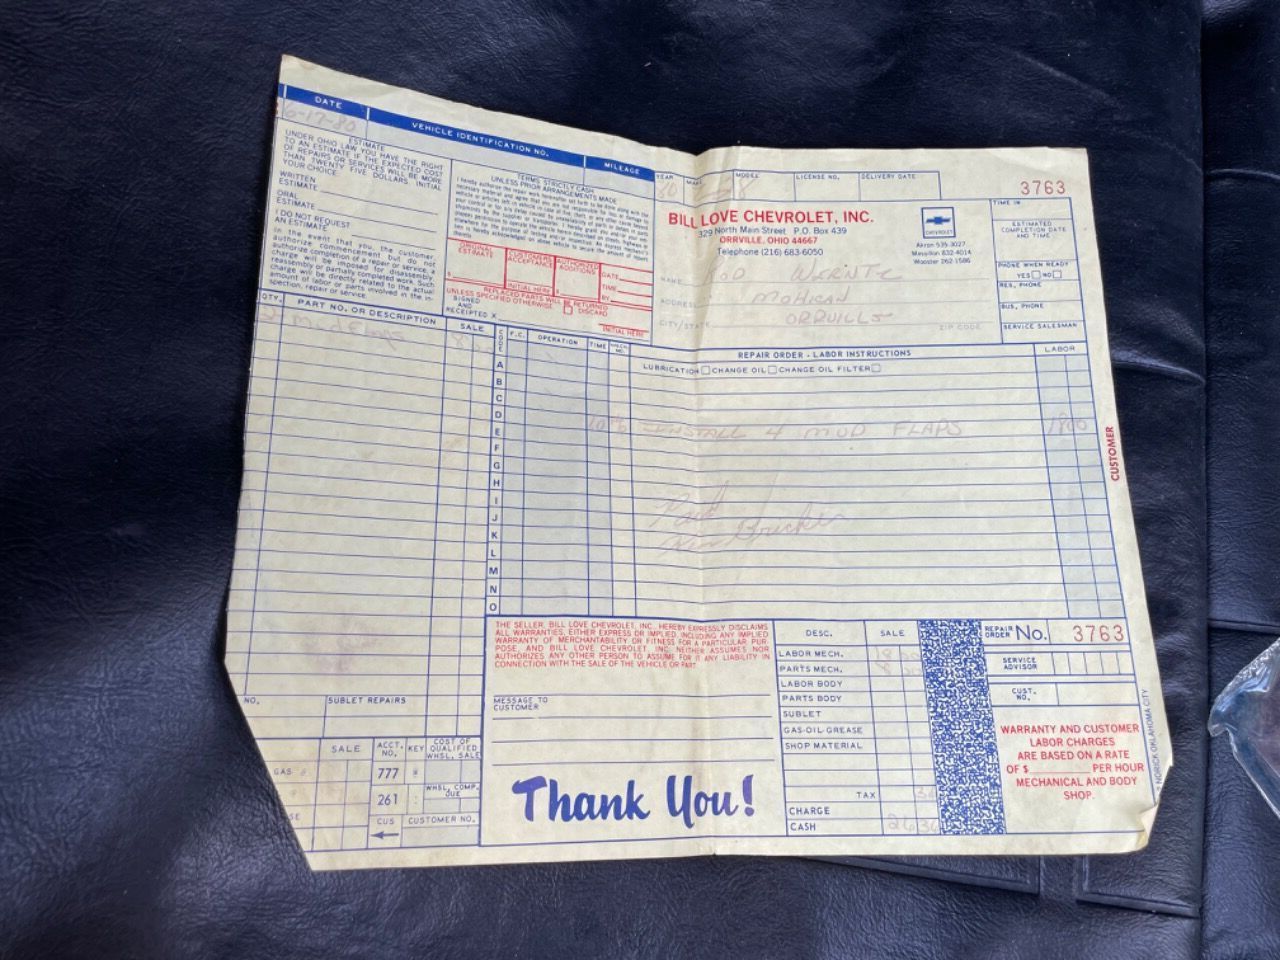 DATE VEHICLE IDENTIFICATION NO. MILEAGE YEAR MAKE MODEL LICENSE NO. DELIVERY DATE
6-17-80
3763
ESTIMATE
UNDER OHIO LAW YOU HAVE THE RIGHT
TO AN ESTIMATE IF THE EXPECTED COST
OF REPAIRS OR SERVICES WILL BE MORE
THAN TWENTY FIVE DOLLARS. INITIAL
YOUR CHOICE.
WRITTEN
ESTIMATE
ORAL
ESTIMATE
I DO NOT REQUEST
AN ESTIMATE
In the event that you, the customer,
authorize commencement but do not
authorize completion of a repair or service, a
charge will be imposed for disassembly,
reassembly or partially completed work. Such
charge will be directly related to the actual
amount of labor or parts involved in the in-
spection, repair or service.
TERMS STRICTLY CASH
UNLESS PRIOR ARRANGEMENTS MADE
ORIGINAL
ESTIMATE
$
CUSTOMERS
ACCEPTANCE
INITIAL HERE
AUTHORIZED
ADDITIONS
$
DATE
TIME
BY
REPLACED PARTS WILL BE
UNLESS SPECIFIED OTHERWISE.
RETURNED
DISCARD
SIGNED
AND
RECEIPTED X
INITIAL HERE
BILL LOVE CHEVROLET, INC.
329 North Main Street P.O. Box 439
ORRVILLE, OHIO 44667
Telephone (216) 683-6050
CHEVROLET
Akron 535-3027
Massillon 832-4014
Wooster 262-1586
NAME
ADDRESS MOHICAN
CITY/STATE ORRVILLE ZIP CODE
TIME IN
ESTIMATED
COMPLETION DATE
AND TIME
PHONE WHEN READY
YES NO
RES. PHONE
BUS. PHONE
SERVICE SALESMAN
QTY. PART NO. OR DESCRIPTION SALE
Mud Flaps 8 00
CODE F.C. OPERATION TIME MECH. NO.
REPAIR ORDER - LABOR INSTRUCTIONS LABOR
LUBRICATION CHANGE OIL CHANGE OIL FILTER
A
B
C
D
E
INSTALL 4 MUD FLAPS 18 00
F
G
H
I
J
K
L
M
N
O
Paid
CUSTOMER
NO. SUBLET REPAIRS
SALE ACCT. NO. KEY COST OF QUALIFIED WHSL. SALE
GAS 777
WHSL. COMP. DUE
261
CUS CUSTOMER NO.
THE SELLER, BILL LOVE CHEVROLET, INC., HEREBY EXPRESSLY DISCLAIMS
ALL WARRANTIES, EITHER EXPRESS OR IMPLIED, INCLUDING ANY IMPLIED
WARRANTY OF MERCHANTABILITY OR FITNESS FOR A PARTICULAR PUR-
POSE, AND BILL LOVE CHEVROLET, INC. NEITHER ASSUMES NOR
AUTHORIZES ANY OTHER PERSON TO ASSUME FOR IT ANY LIABILITY IN
CONNECTION WITH THE SALE OF THE VEHICLE OR PART.
MESSAGE TO
CUSTOMER
Thank You!
DESC. SALE
LABOR MECH. 18 00
PARTS MECH. 8 00
LABOR BODY
PARTS BODY
SUBLET
GAS-OIL-GREASE
SHOP MATERIAL
TAX 36
CHARGE
CASH 26 36
REPAIR ORDER No. 3763
SERVICE
ADVISOR
CUST.
NO.
WARRANTY AND CUSTOMER
LABOR CHARGES
ARE BASED ON A RATE
OF $ PER HOUR
MECHANICAL AND BODY
SHOP.
NORICK OKLAHOMA CITY